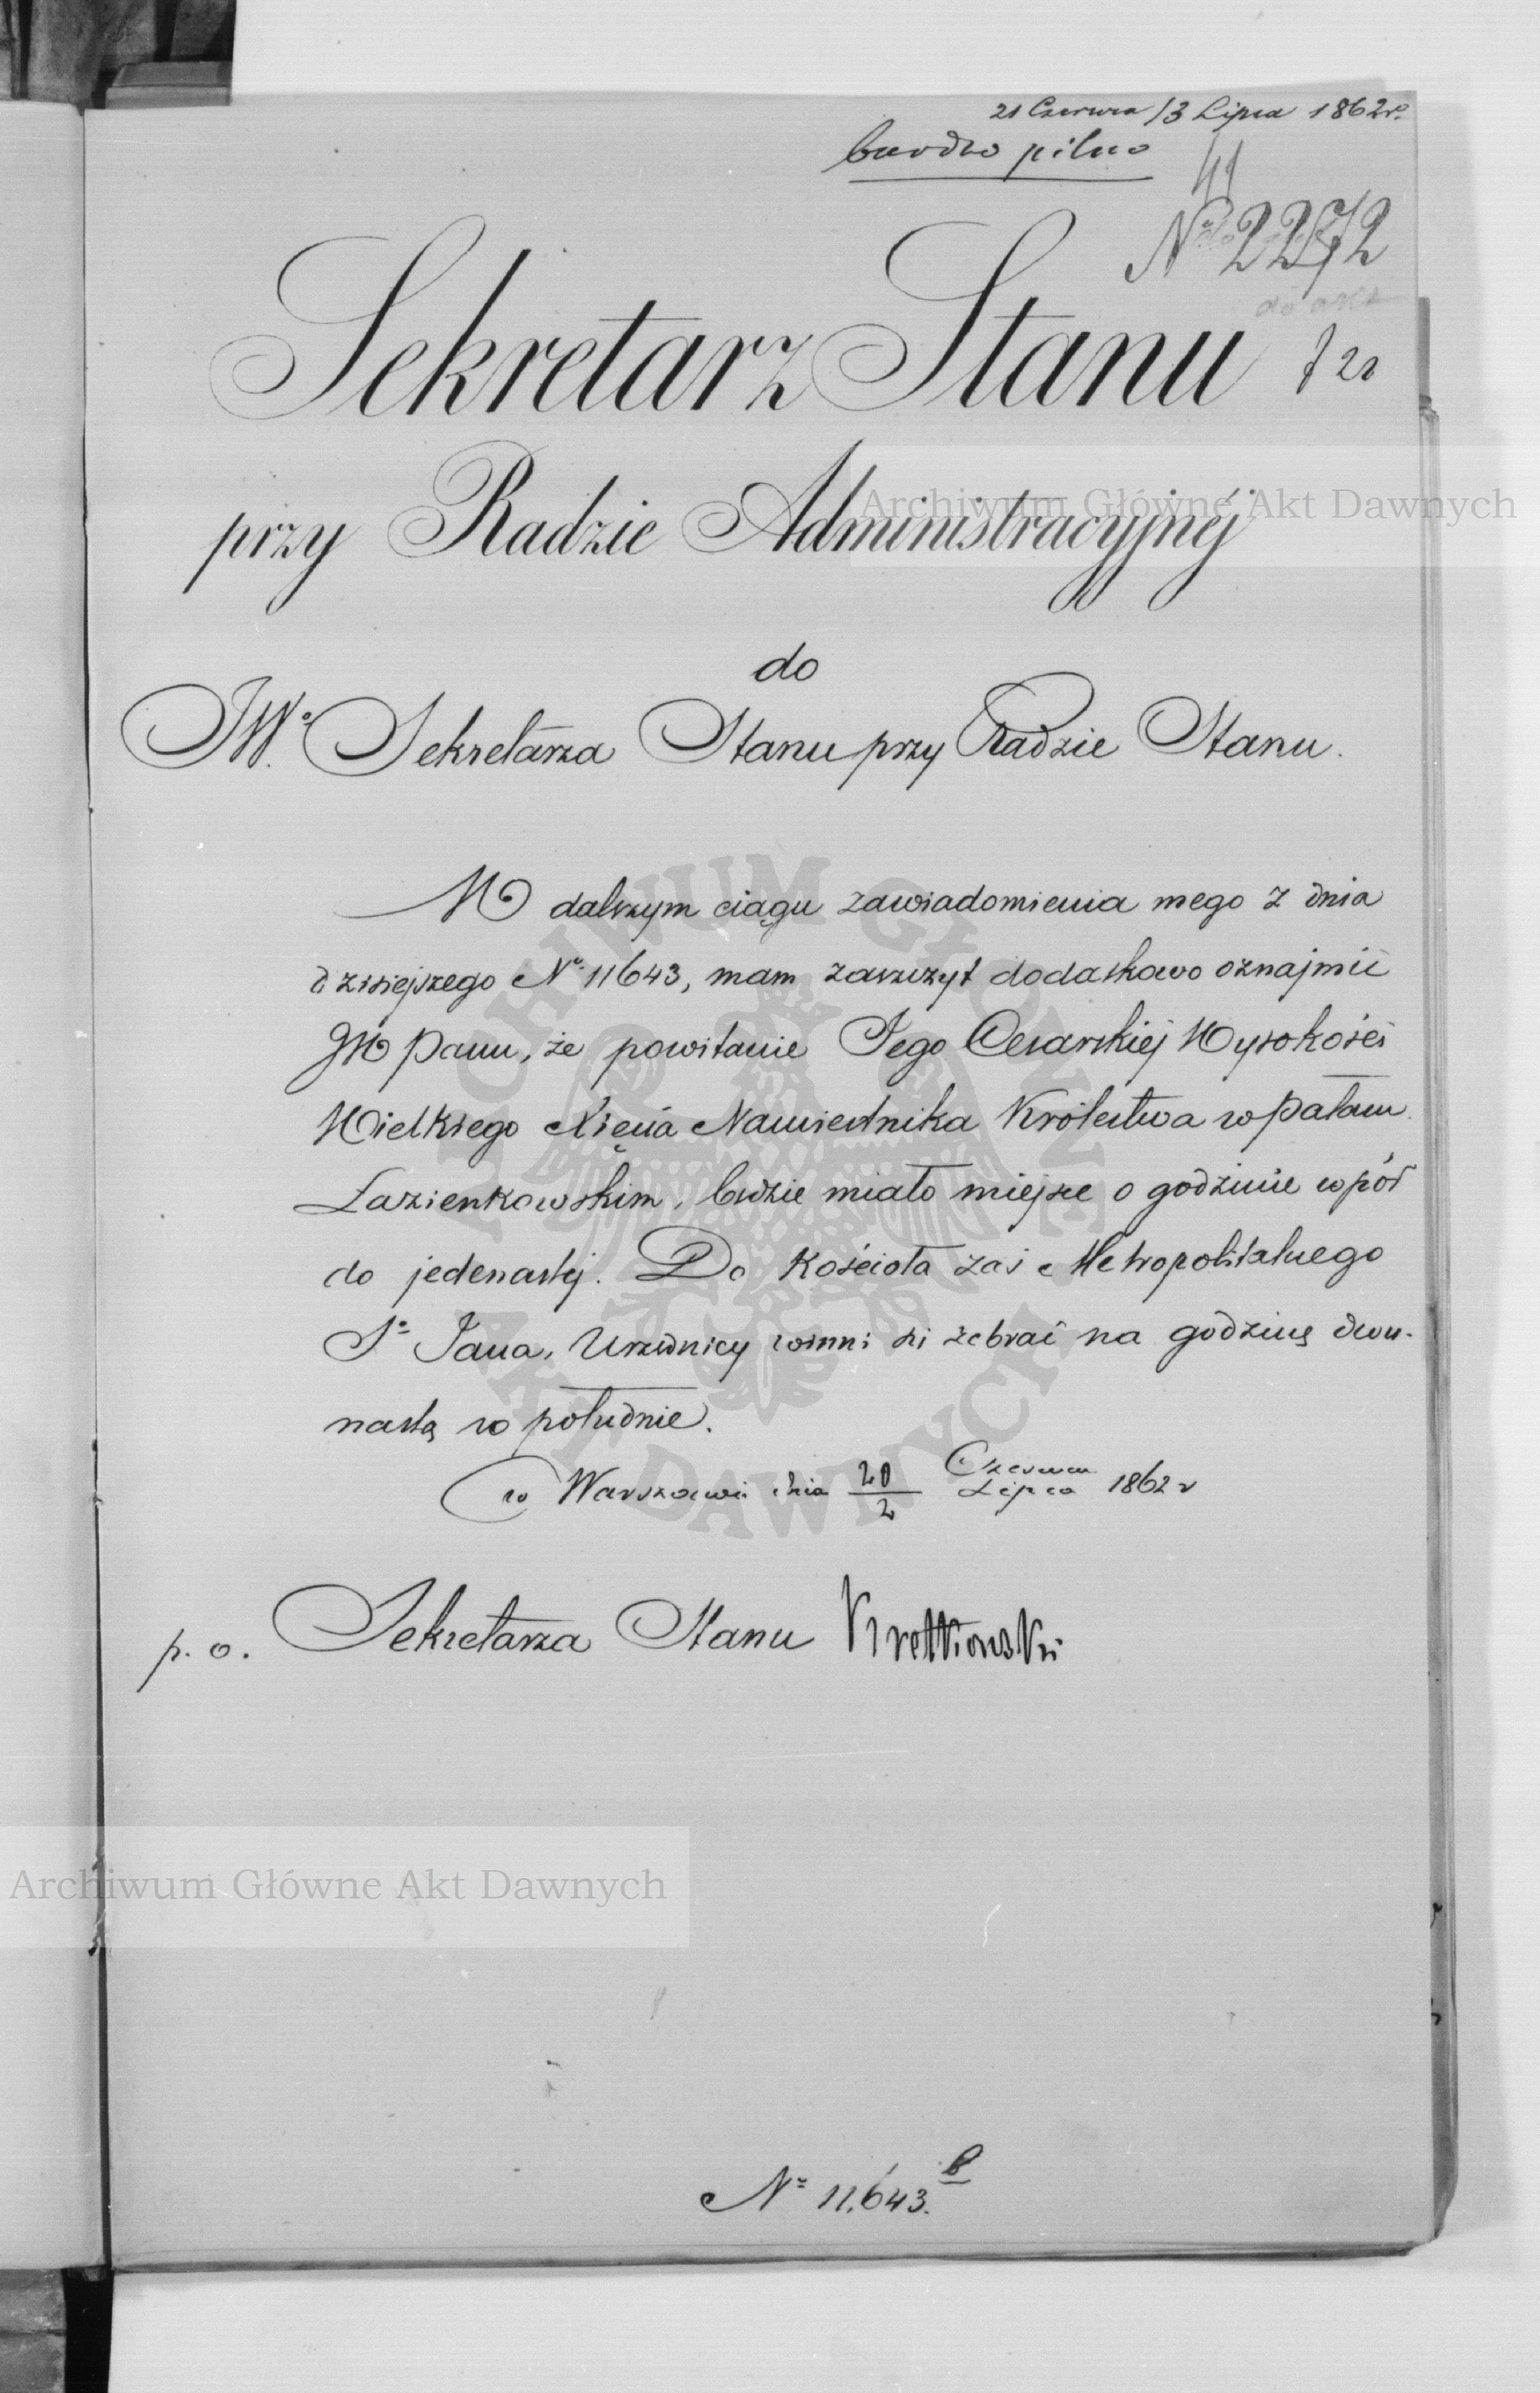 21 Czerwca /3 Lipca 1862 r.
bardzo pilno
41
No 2272
do akt
Sekretarz Stanu
przy Radzie Administracyjnéj
do
JWo. Sekretarza Stanu przy Radzie Stanu.
W dalszym ciągu zawiadomienia mego z dnia
dzisiejszego No. 11643, mam zaszczyt dodatkowo oznajmić
JW Panu, że powitanie Jego Cesarskiéj Wysokości
Wielkiego Xięcia Namiestnika Królestwa w Pałacu
Łazienkowskim, będzie miało miejsce o godzinie wpół
do jedenastéj. Do Kościoła zaś Metropolitalnego
So Jana, Urzędnicy winni się zebrać na godzinę dwu-
nastą w południe.
w Warszawie dnia 20/2 Czerwca/Lipca 1862 r
p. o. Sekretarza Stanu Krettkowski
No 11,643. b
Archiwum Główne Akt Dawnych
Archiwum Główne Akt Dawnych
ARCHIWUM GŁÓWNE
AKT DAWNYCH